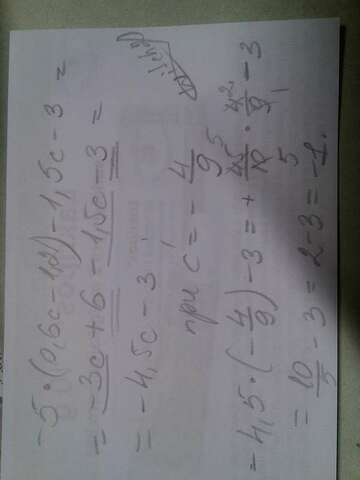 -5·(0,6c-1,2)-1,5c-3=
=-3c+6-1,5c-3=
=-4,5c-3
при c=-4/9
-4,5·(-4/9)-3=+45/10·4/9-3
=10/5-3=2-3=-1.